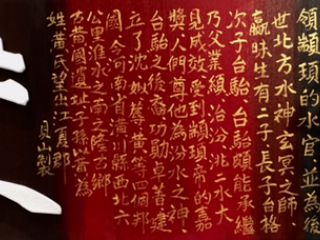 領顓頊的水官,並為後
世北方水神玄冥之師.
嬴昧生有二子,長子台格
次子台駘.台駘頗能承繼
乃父業績,治汾洮二水大
見成效,受到顓頊帝的嘉
獎,人們尊他為汾水之神.
台駘之後裔功勛卓著,建
立了沈姒蓐黃等四個邦
國,今河南省潢川縣西北六
公里淮水之南之隆古鄉
古黃國遺址,子孫皆為
姓黃氏望出江夏郡
貝山製